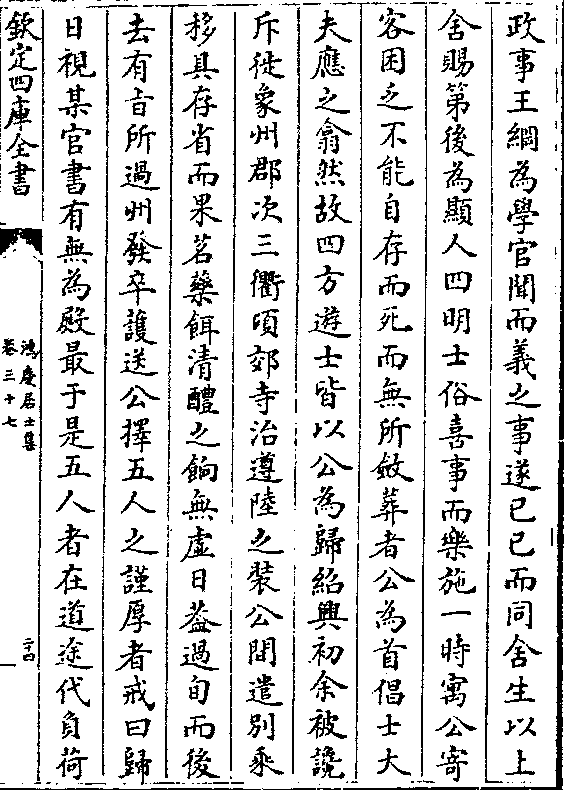 政事王綱為學官聞而義之事遂已已而同舍生以上
舍賜第後為顯人四明士俗喜事而樂施一時寓公寄
客困乏不能自存而死而無所斂葬者公為首倡士大
夫應之翕然故四方遊士皆以公為歸紹興初余被讒
斥徙象州郡次三衢頃郊寺治遵陸之裝公間遣別乘
移具存省而果茗藥餌清醴之餉無虛日葢過旬而後
去有㫖所過州發卒護送公擇五人之謹厚者戒曰歸
日視某官書有無為殿最于是五人者在道途代負荷
欽定四庫全書
鴻慶居士集
卷三十七
二十四